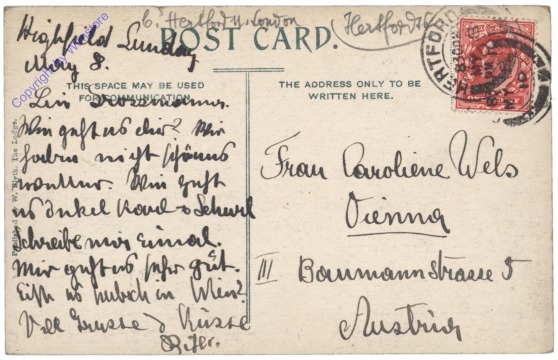 6. Hertford u. London
(Hertford
Highfield Sunday
May 8.
POST CARD.
THIS SPACE MAY BE USED
FOR COMMUNICATION.
THE ADDRESS ONLY TO BE
WRITTEN HERE.
HERTFORD
Wie geht es dir? Wir
haben nicht schönes
wetter. Wie geht
es Onkel Karl &
Schreibe mir Einmal.
Mir geht es sehr gut.
Ist es hübsch in Wien?
Viele Grüsse & Küsse
Peter.
Frau Caroliene Wels
Vienna
III Baumannstrasse 5
Austria